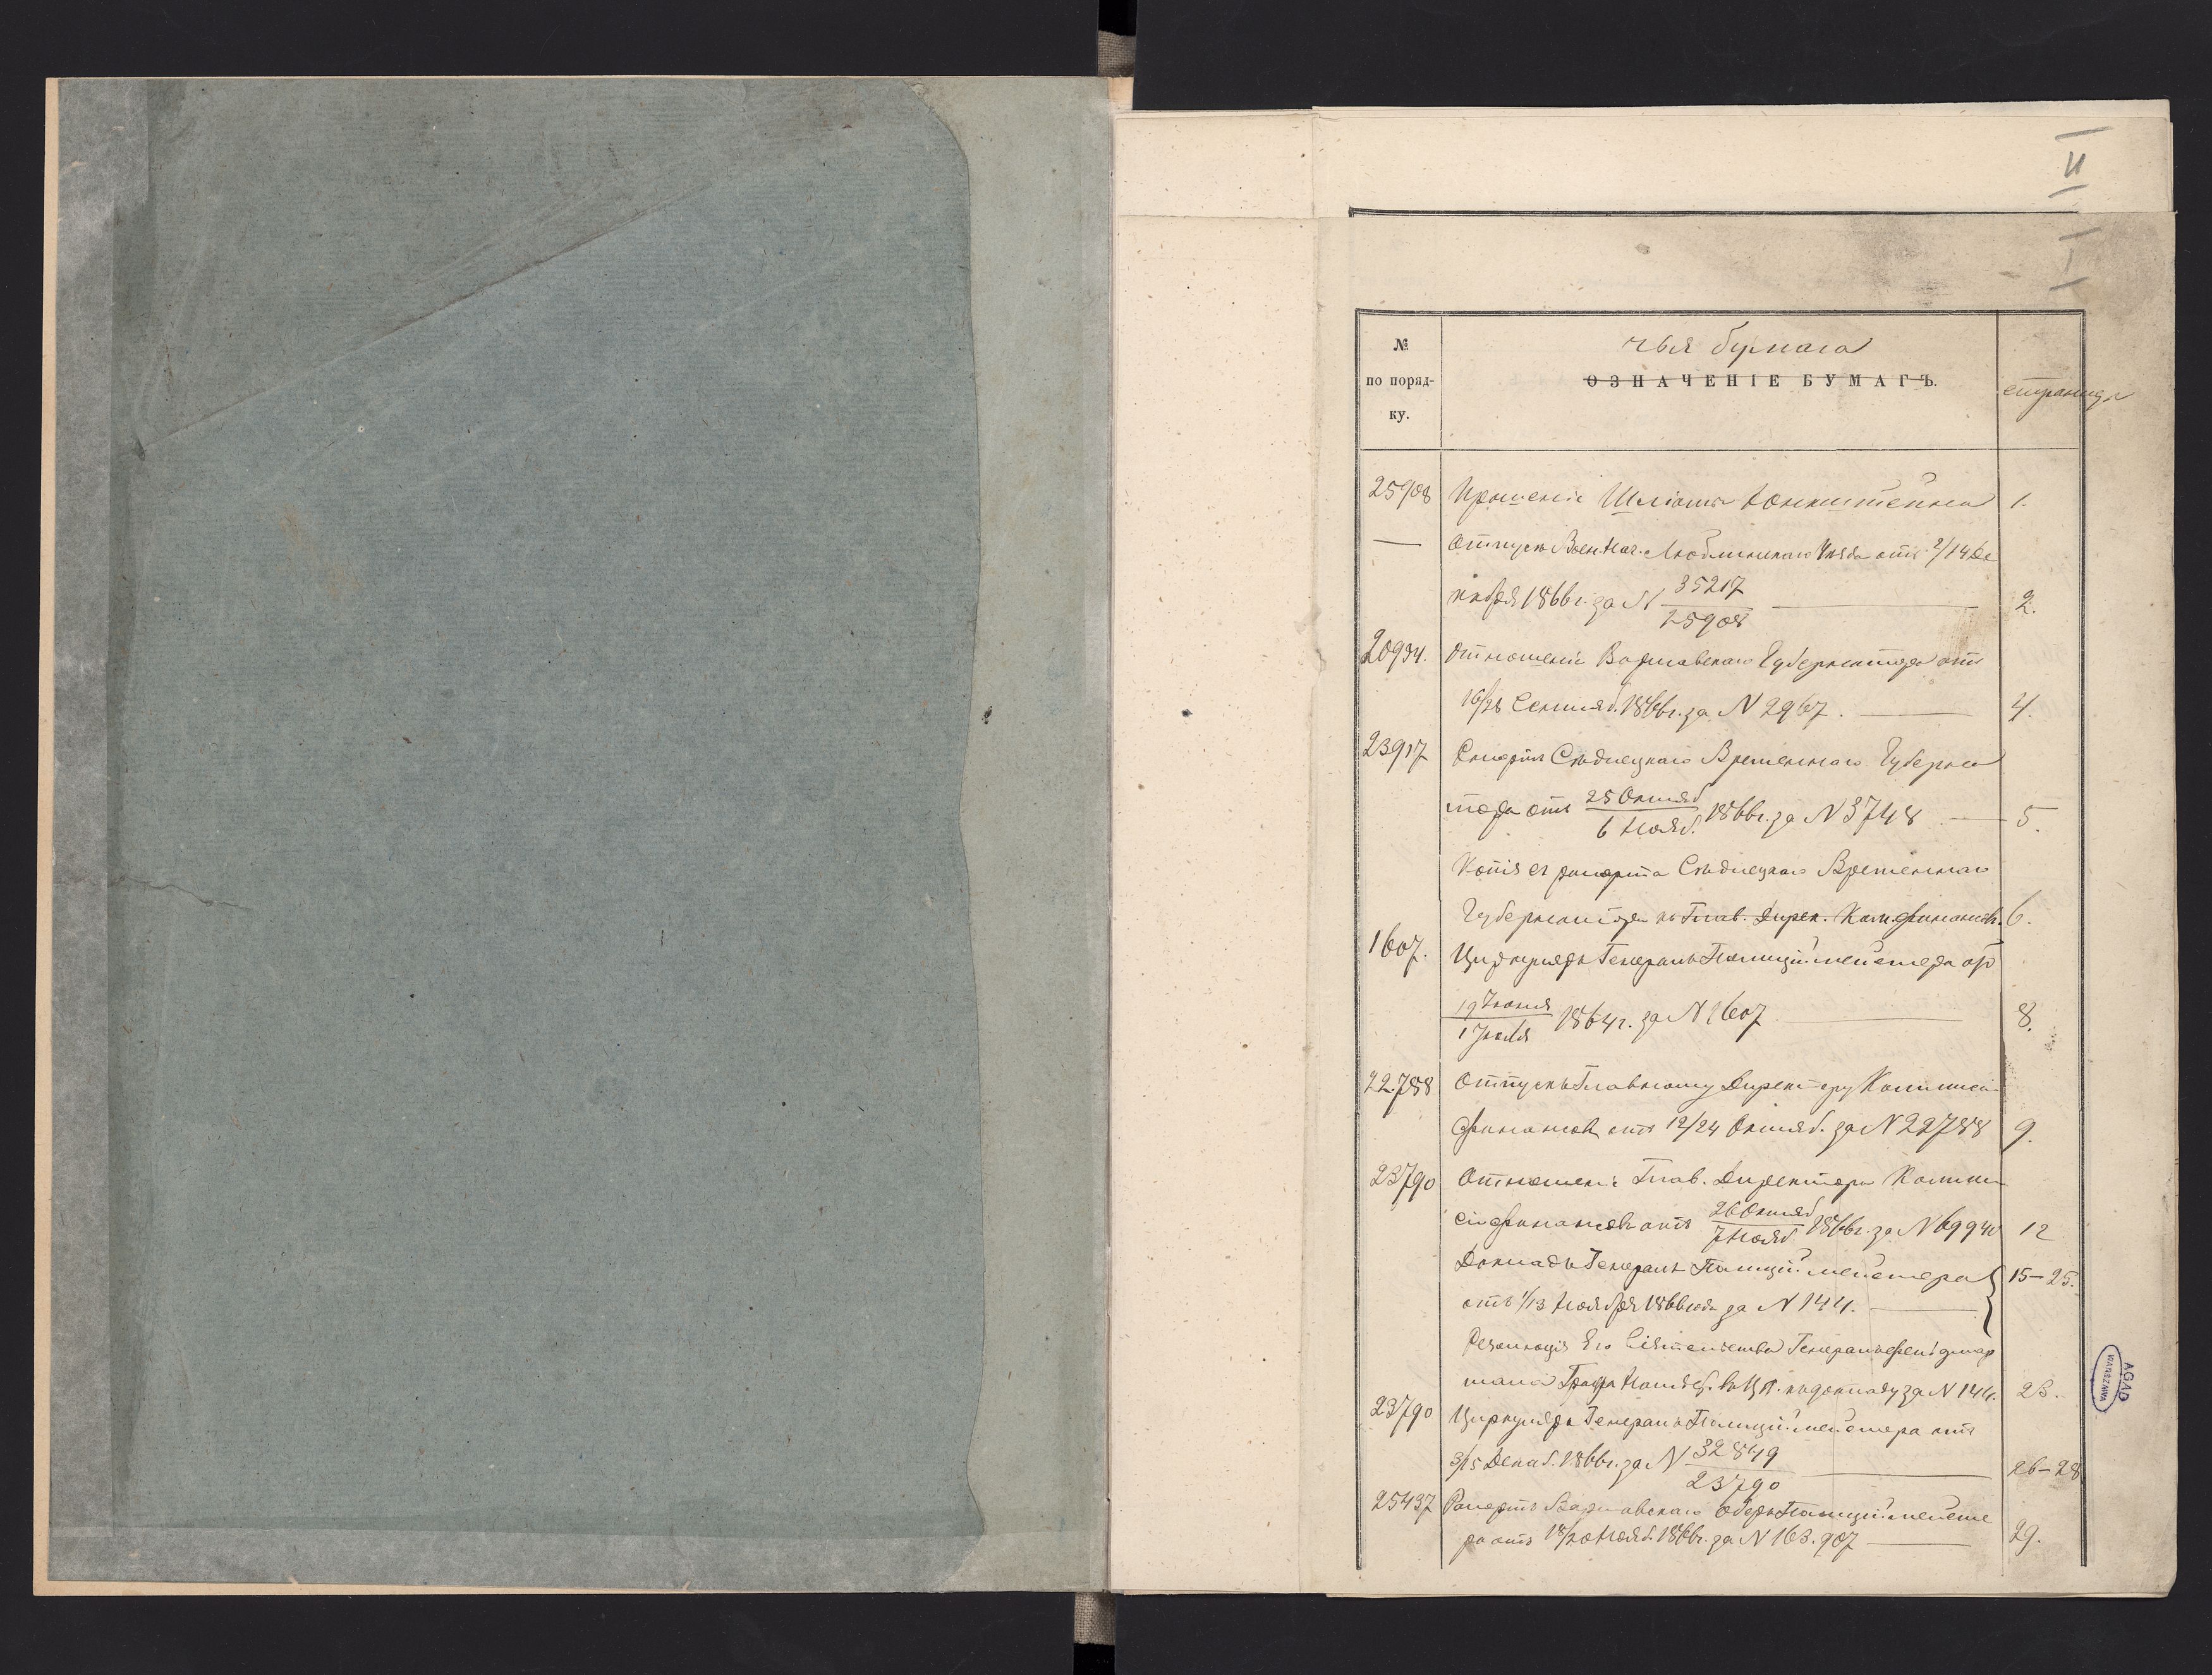 II
I
№
по поряд-
ку.
чья бумага
ОЗНАЧЕНІЕ БУМАГЪ.
страница
25908 Прошеніе Шліомы 1.
— Отпускъ Воен. Нач. Люблинскаго Уѣзда отъ 2/14 Де
кабря 1866 г. за N 35217/25908 — 2.
20934. Отношеніе Варшавскаго Губернатора отъ
16/28 Сентяб. 1866 г. за N 2967. — 4.
23917 Рапортъ Сѣдлецкаго Временнаго Губерна
тора отъ 25 Октяб/6 Нояб. 1866 г. за N 3748 — 5.
Копія съ рапорта Сѣдлецкаго Временнаго
Губернатора къ Глав. Дирек. Ком. Финансовъ. 6.
1607. Циркуляръ Генералъ Полиціймейстера отъ
19 Іюня/1 Іюля 1864 г. за N 1607 — 8.
22.788 Отпускъ Главному Директору Коммисіи
Финансовъ отъ 12/24 Октяб. за N 22788 9.
23790 Отношеніе Глав. Директора Комми
сіи Финансовъ отъ 26 Октяб/7 Нояб. 1866 г. за N 69940 12
Докладъ Генералъ Полиціймейстера 15-25.
отъ 1/13 Ноября 1866 года за N 144. —
Резолюція Его Сіятельства Генералъ Фельдмар
шала Графа Намѣс. въ Ц. П. къ докладу за N 144. 23.
23790 Циркуляръ Генералъ Полиціймейстера отъ
3/15 Декаб. 1866 г. за N 32849/23790 — 26-28
25437 Рапортъ Варшавскаго Оберъ Полиціймейсте
ра отъ 18/30 Нояб. 1866 г. за N 163.907 — 29.
AGAD
WARSZAWA